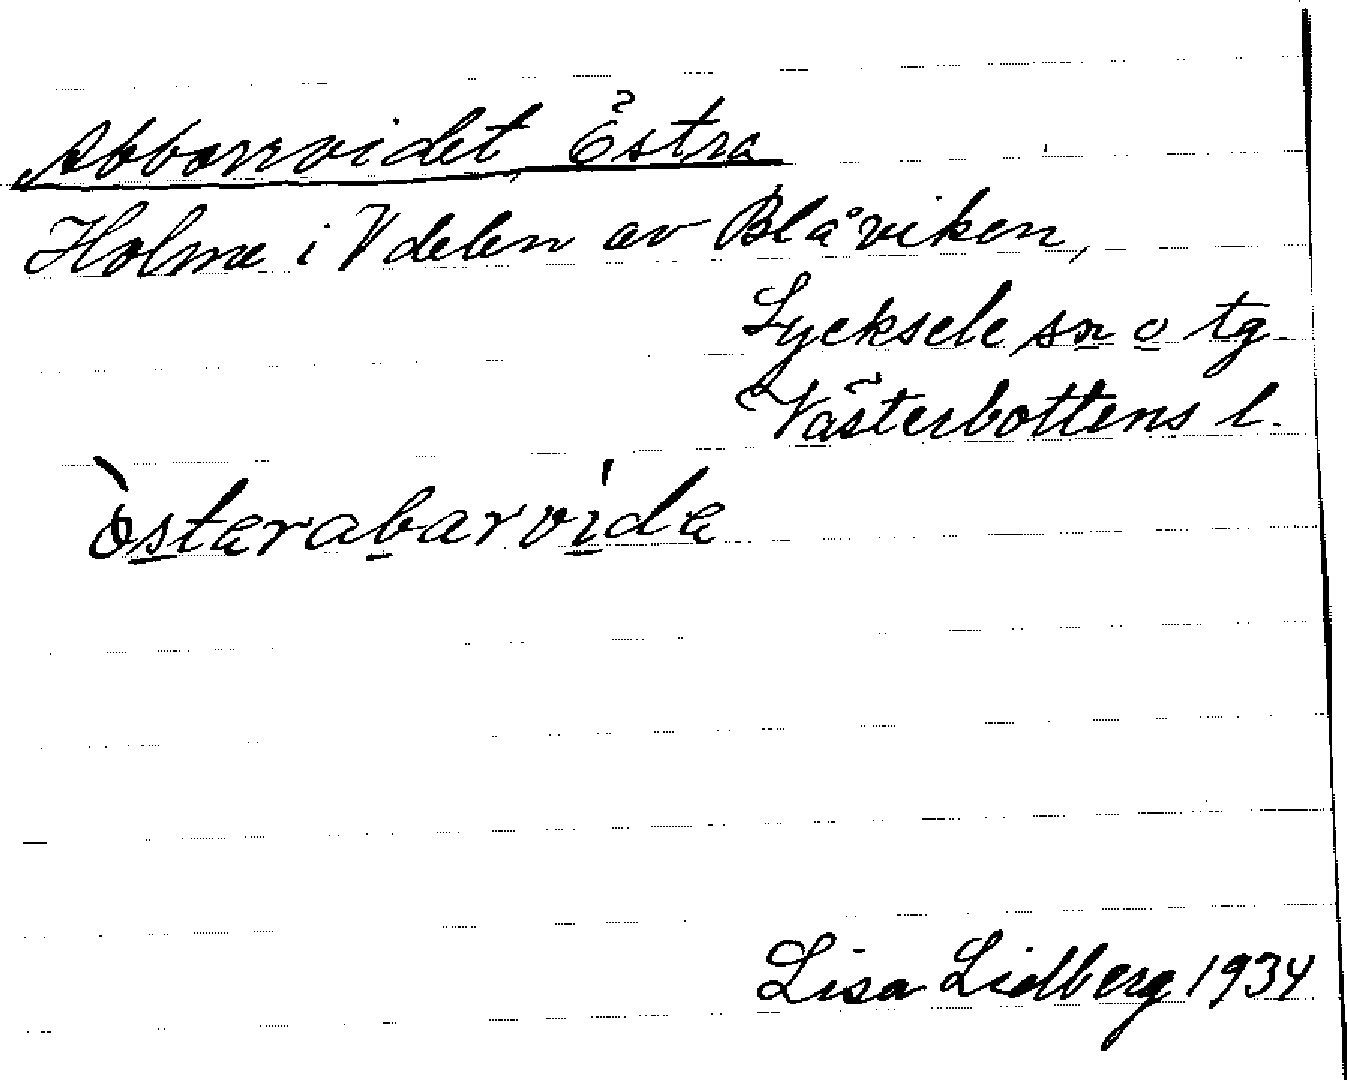 Abborrvidet, Östra
Holme i V delen av Blåviken,
Lycksele sn o tg
Västerbottens l.
òsterabarvide
Lisa Lidberg 1934